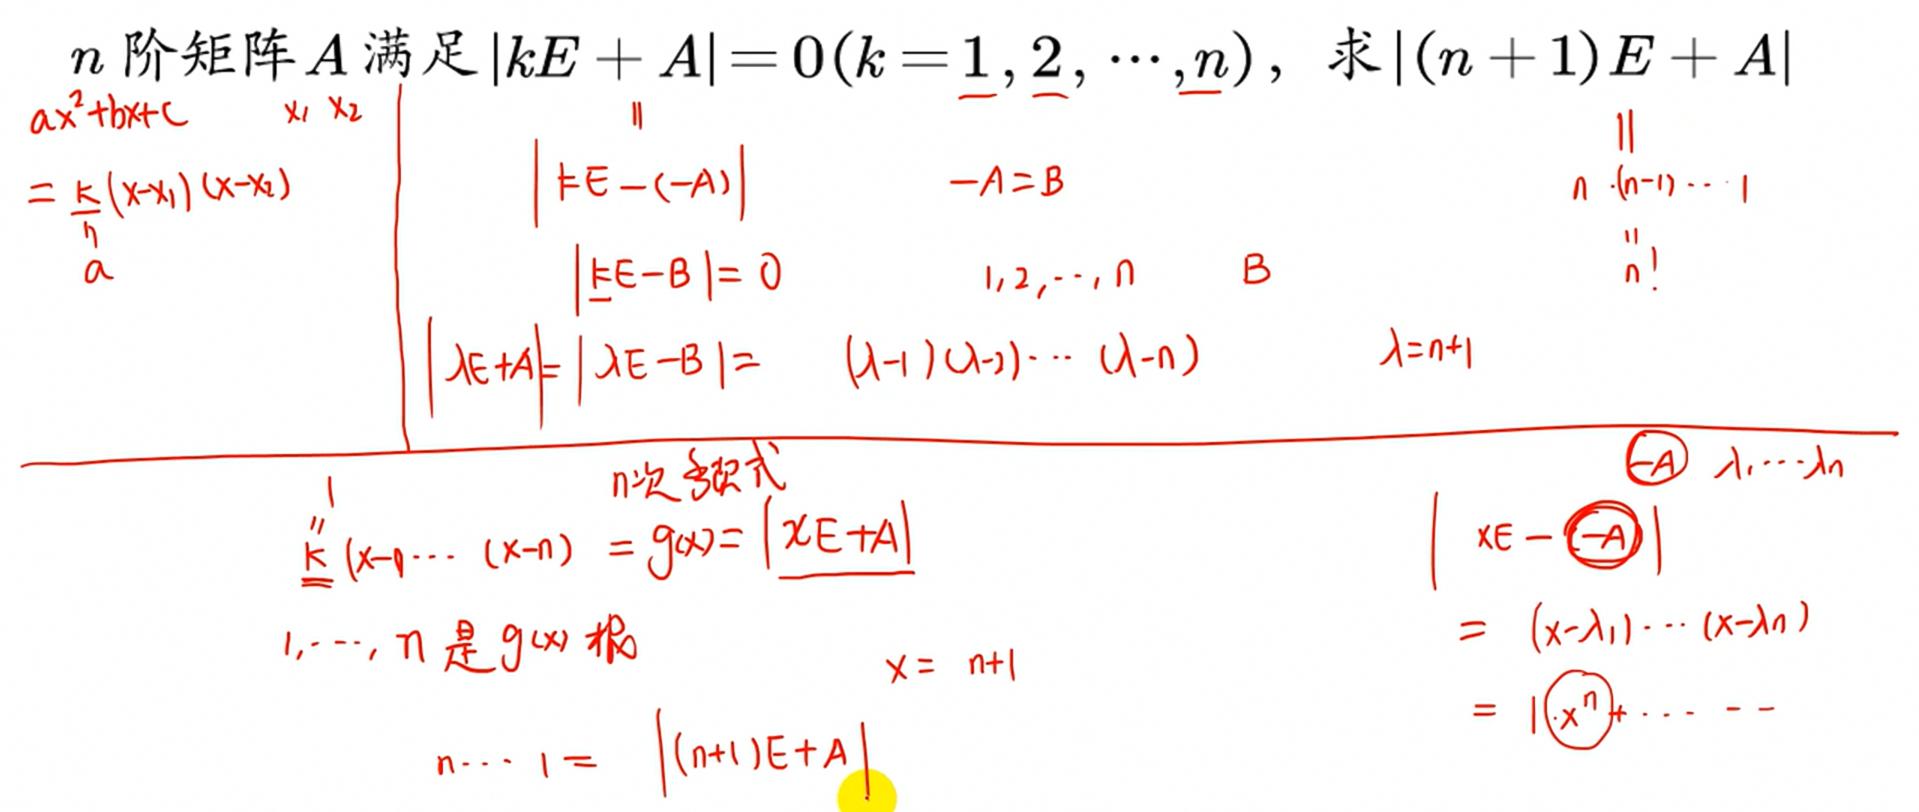 n 阶矩阵 A 满足 |kE + A| = 0 (k = 1, 2, ⋯, n), 求 |(n + 1)E + A|
ax²+bx+c x₁ x₂
= k(x-x₁)(x-x₂)
a
||
|kE-(-A)| -A=B
|kE-B|=0 1,2,⋯,n B
|λE+A|=|λE-B|= (λ-1)(λ-2)⋯(λ-n) λ=n+1
||
n·(n-1)⋯1
||
n!
n次多项式
1
||
k(x-1)⋯(x-n) = g(x)= |xE+A|
1,⋯,n是g(x)根
x= n+1
n⋯1= |(n+1)E+A|
-A λ₁⋯λn
|xE-(-A)|
= (x-λ₁)⋯(x-λn)
= 1·xⁿ+⋯⋯